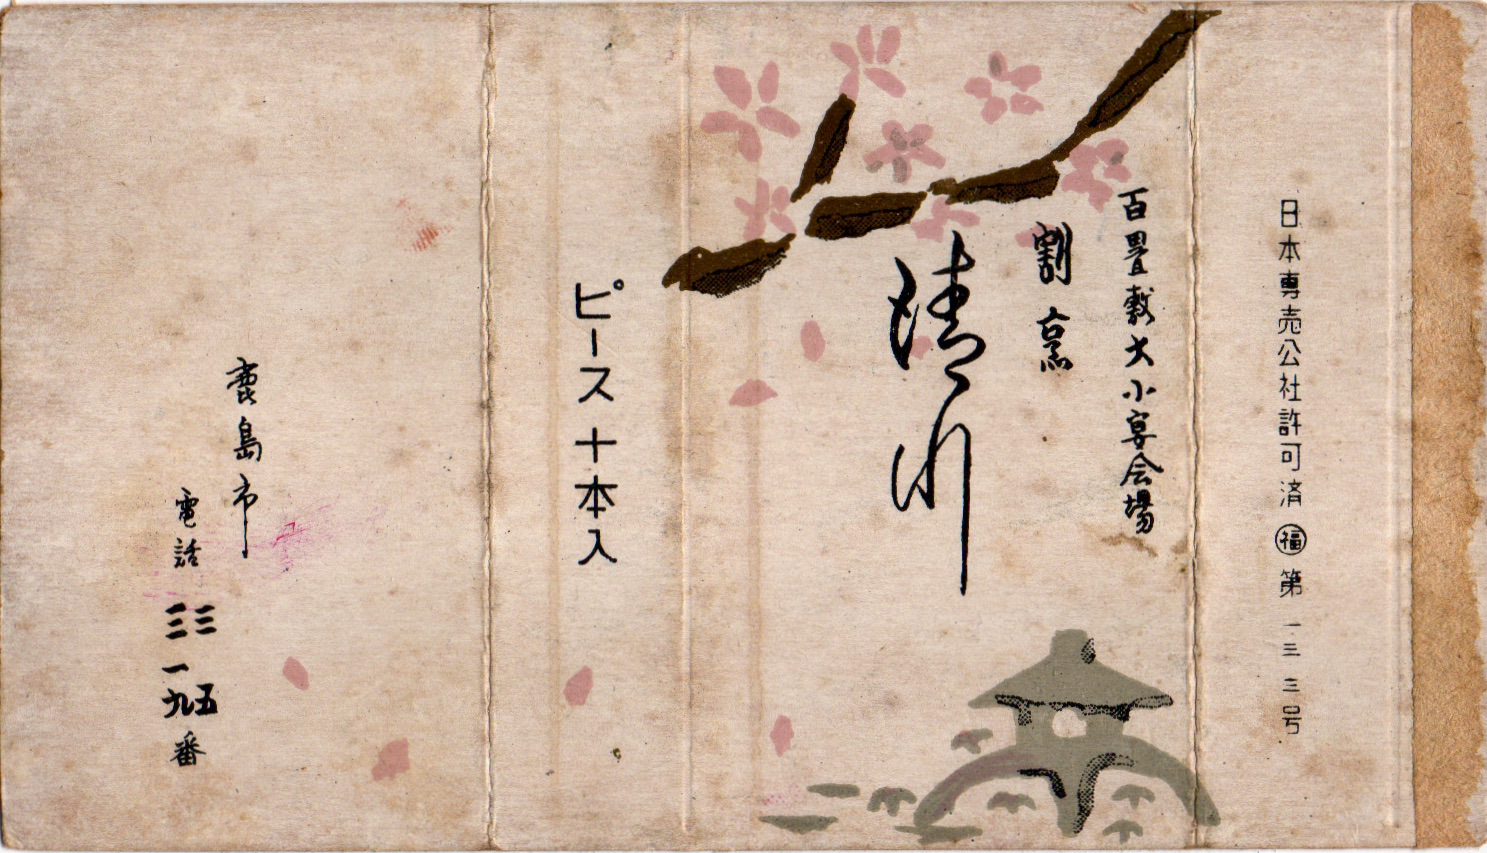 日本専売公社許可済㊗福第一三三号
百畳敷大小宴会場
割烹
清川
ピース十本入
鹿島市
電話 三五 三一九 番